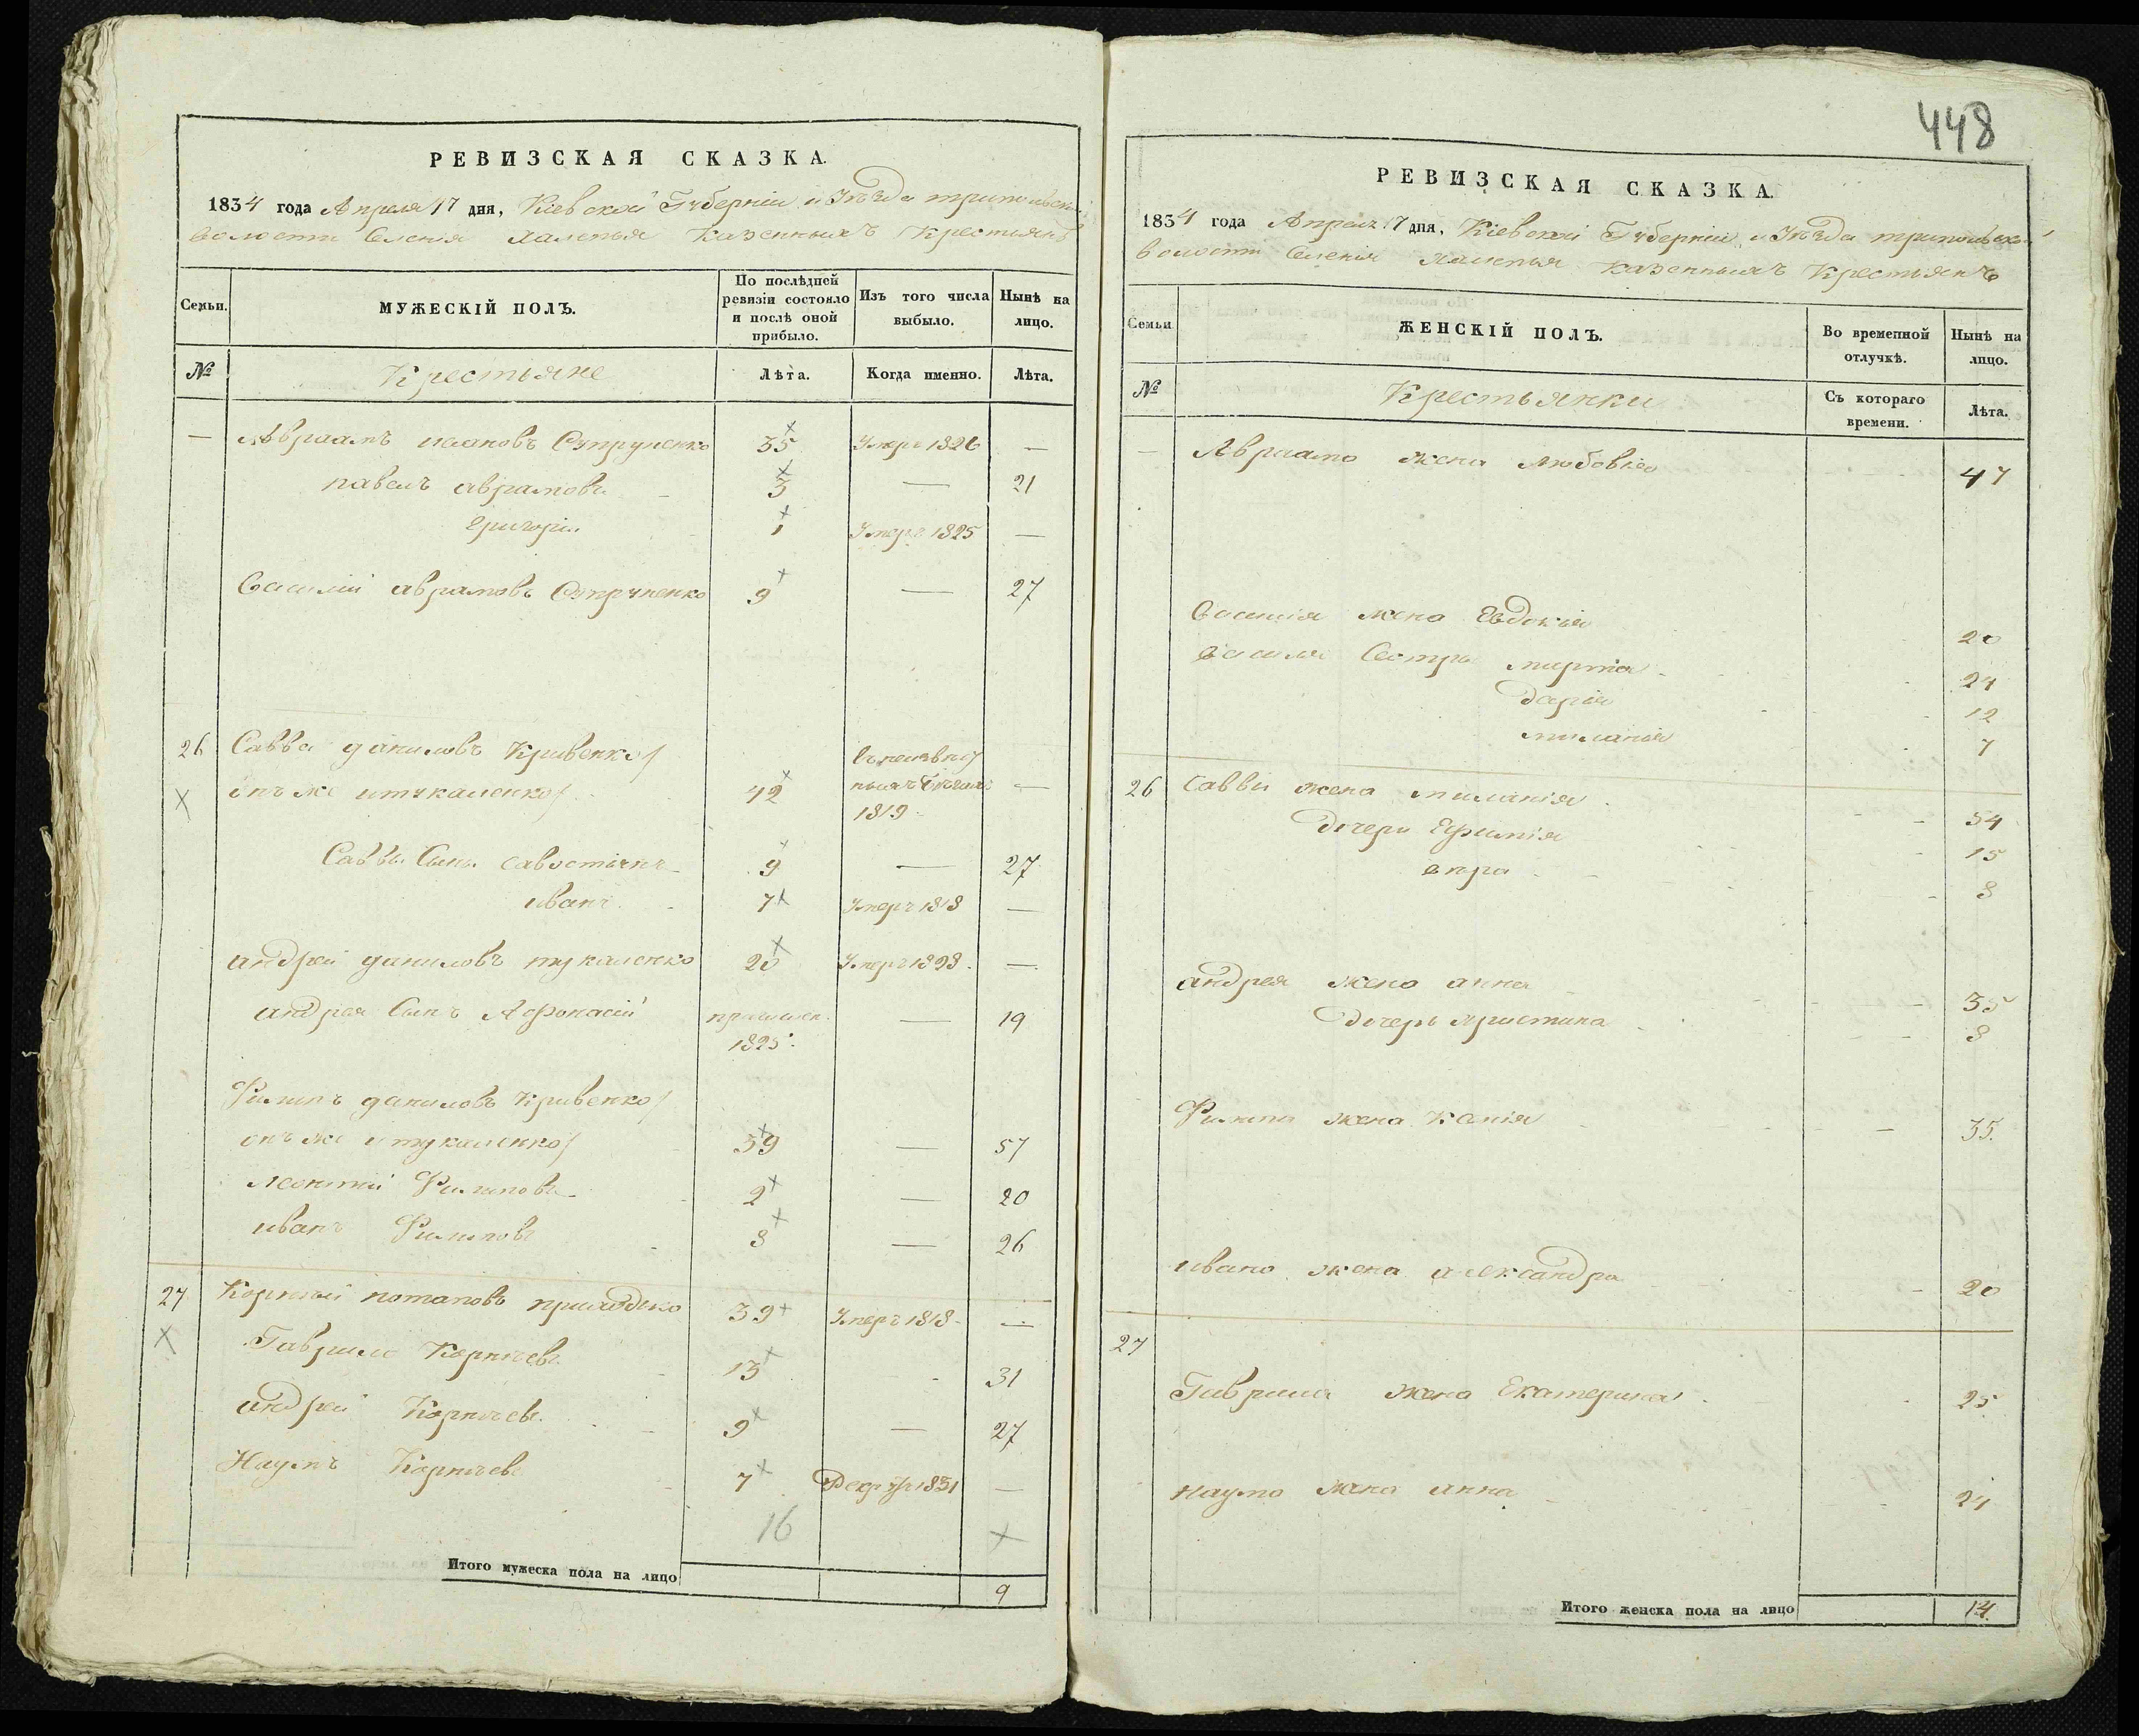 РЕВИЗСКАЯ СКАЗКА.
1834 года Апреля 17 дня, Кіевской Губерніи и Уѣзда трипольской
волости Селенія Халепья Казенныхъ Крестьянъ
Семьи. МУЖЕСКІЙ ПОЛЪ. По послѣдней ревизіи состояло и послѣ оной прибыло. Изъ того числа выбыло. Нынѣ на лицо.
№ Крестьяне Лѣта. Когда именно. Лѣта.
— Авраамъ Супруненко 35 Умеръ 1826 —
павелъ аврамовъ 3 — 21
григорій 1 Умеръ 1825 —
Василій аврамовъ Супруненко 9 — 27
26 Савва даниловъ Кривенко
онъ же итукаленко 42 1819 —
Саввы Сынъ савостіянъ 9 — 27
иванъ 7 Умеръ 1818 —
андрей даниловъ тукаленко 20 Умеръ —
андрея Сынъ Афонасій 1825 — 19
Филипъ даниловъ Кривенко
онъ же итукаленко 39 — 57
леонтій Филиповъ 2 — 20
иванъ Филиповъ 8 — 26
27 Корнѣй потаповъ приходько 39 Умеръ 1818 —
Гаврило Корнѣевъ 13 - 31
андрей Корнѣевъ 9 — 27
Наумъ Корнѣевъ 7 Рекрутъ 1831 —
16
Итого мужеска пола на лицо 9
448
РЕВИЗСКАЯ СКАЗКА.
1834 года Апреля 17 дня, Кіевской Губерніи и Уѣзда трипольской
волости Селенія Халепья казенныхъ Крестьянъ
Семьи. ЖЕНСКІЙ ПОЛЪ. Во временной отлучкѣ. Нынѣ на лицо.
№ Крестьянки Съ котораго времени. Лѣта.
— Авраама жена любовія 47
Василія жена Евдокія 20
Василія Сестры марта 24
дарія 12
миланія 7
26 саввы жена миланія 54
дочери Ефимія 15
8
андрея жена анна 35
дочерь христина 8
Филипа жена Ксенія 35.
ивана жена александра 20
27
Гаврила жена Екатерина 25
наума жена анна 24
Итого женска пола на лицо 14.